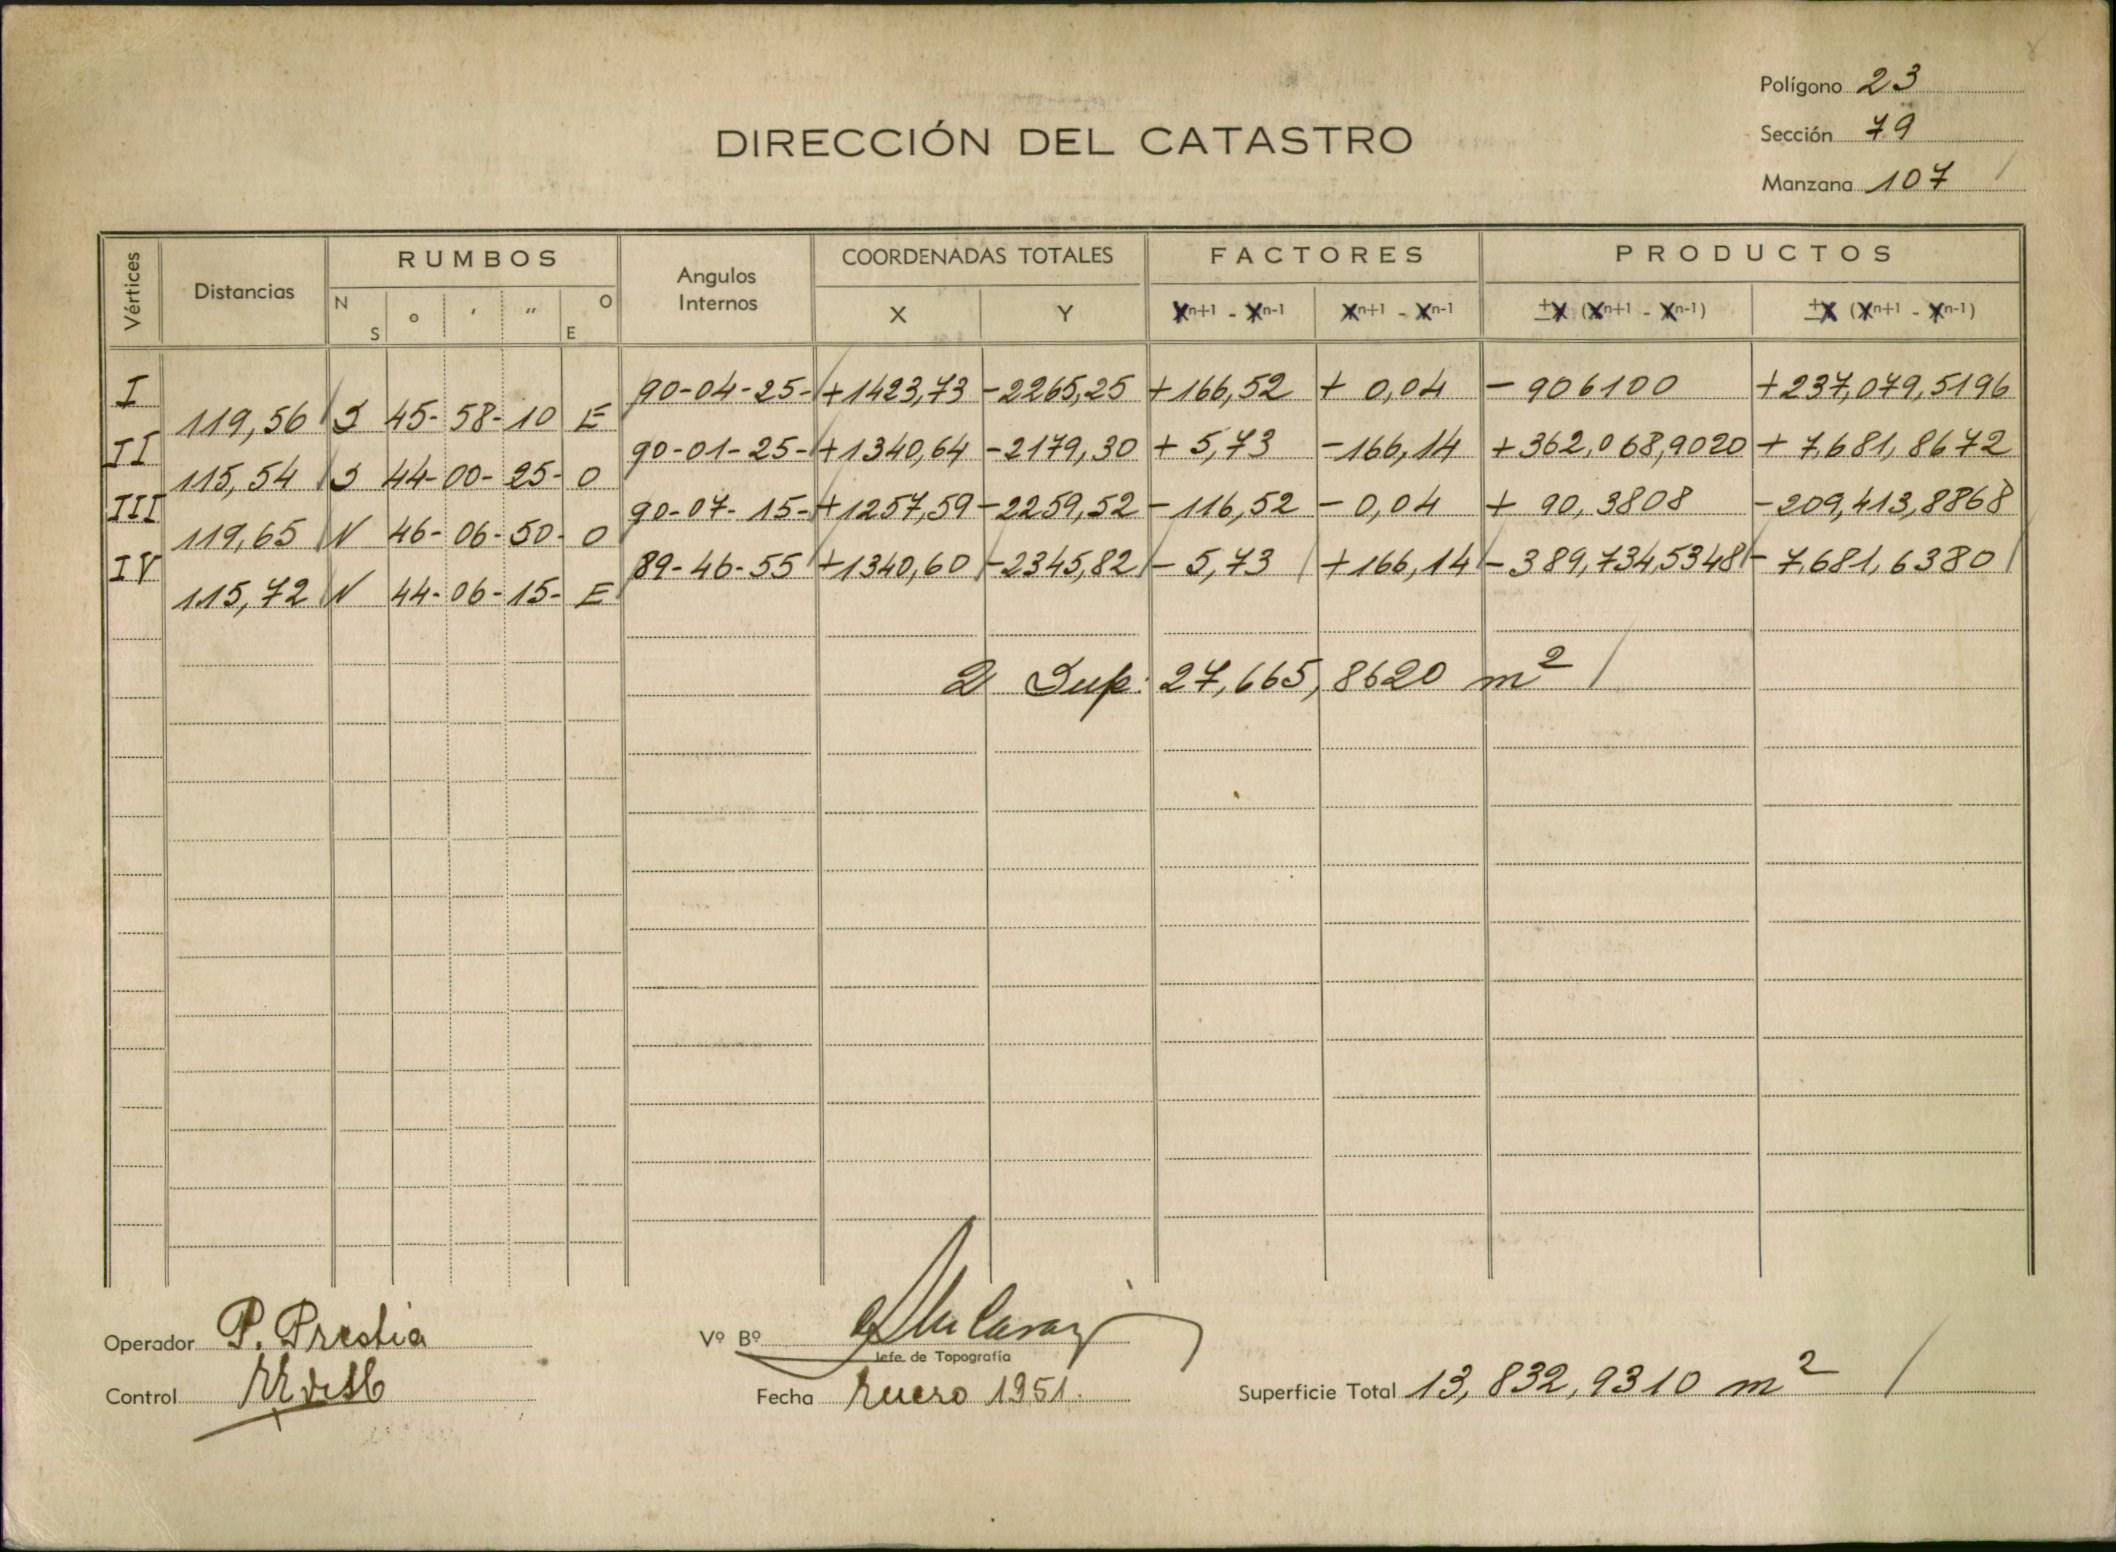 Polígono 23
DIRECCIÓN DEL CATASTRO
Sección 79
Manzana 107
Vértices Distancias RUMBOS Angulos Internos COORDENADAS TOTALES FACTORES PRODUCTOS
N S o ' " O E X Y Xn+1 - Xn-1 Xn+1 - Xn-1 ±X (Xn+1 - Xn-1) ±X (Xn+1 - Xn-1)
I 90-04-25- +1423,73 -2265,25 +166,52 + 0,04 - 906100 +237,079,5196
119,56 S 45- 58- 10 E
II 90-01-25- +1340,64 -2179,30 + 5,73 -166,14 +362,068,9020 + 7,681,8672
115,54 S 44- 00- 25- O
III 90-07-15- +1257,59 -2259,52 -116,52 - 0,04 + 90,3808 -209,413,8868
119,65 N 46- 06- 50- O
IV 89-46-55 +1340,60 -2345,82 - 5,73 +166,14 -389,734,5348 - 7,681,6380
115,72 N 44- 06- 15- E
2 Sup. 27,665,8620 m²
Operador P. Prestia
Vº Bº
Jefe de Topografía
Control
Fecha Enero 1951.
Superficie Total 13,832,9310 m²